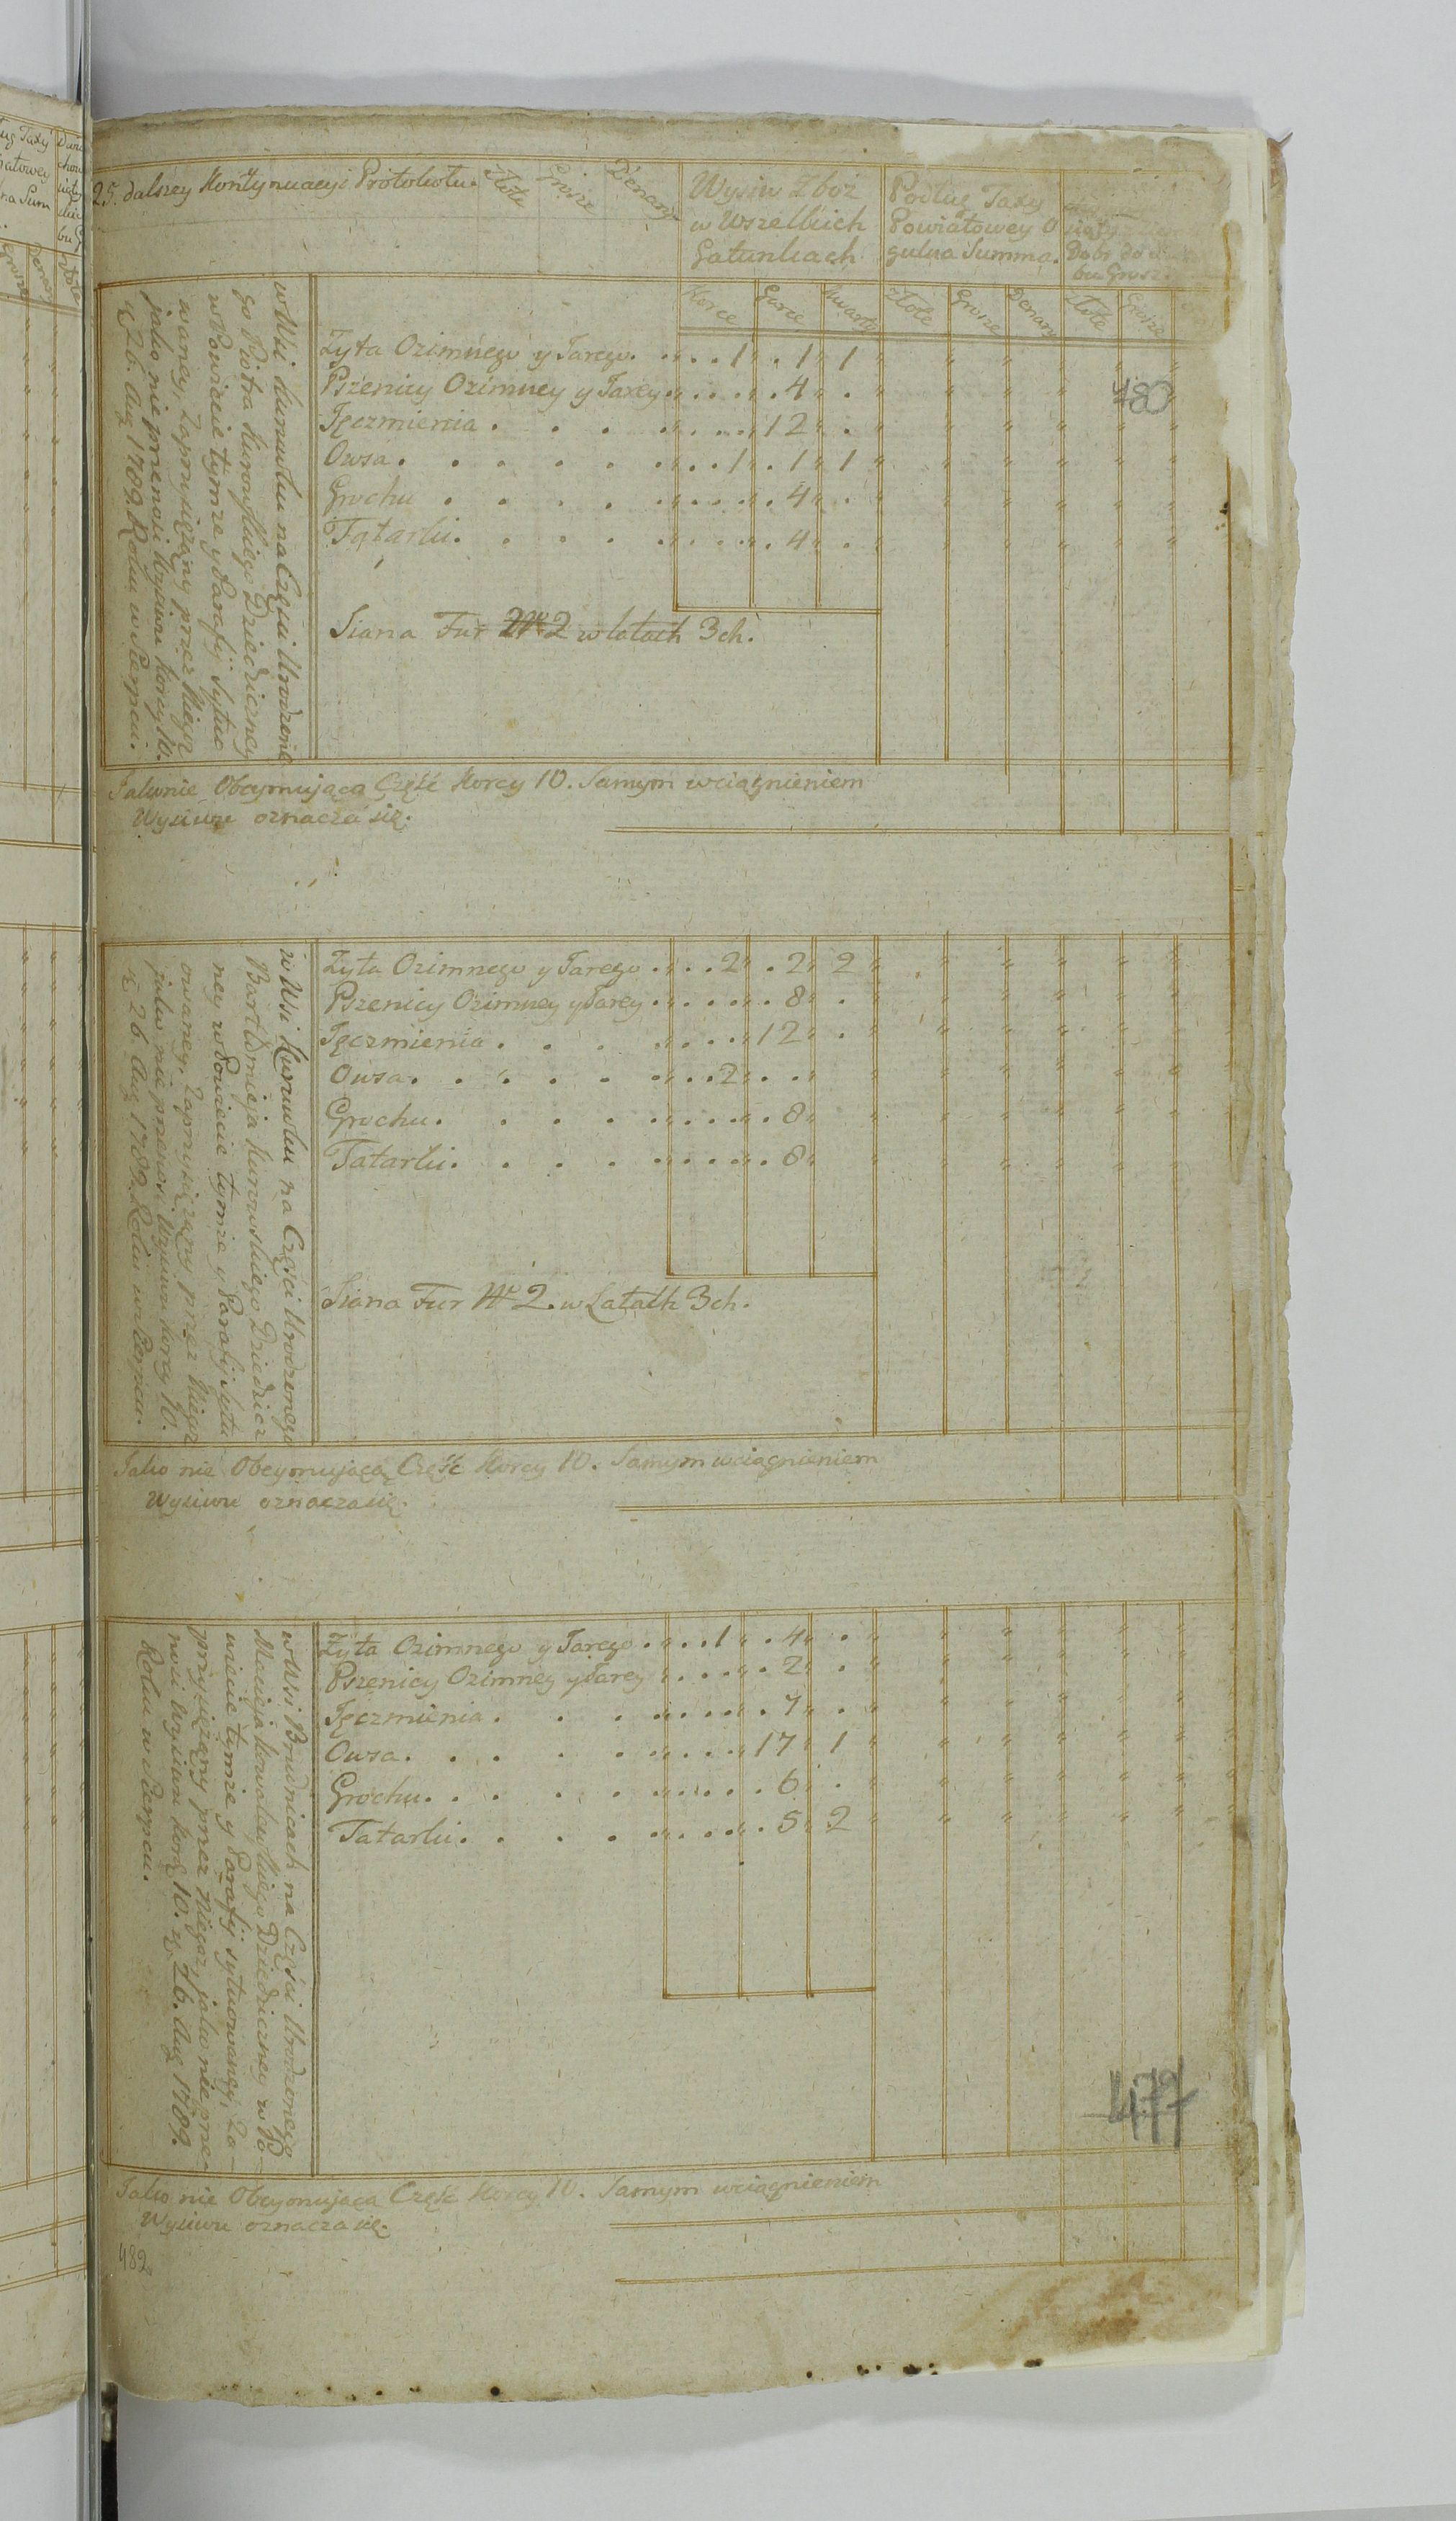 25. dalszey Kontynuacyi Protokołu. Złote Grosze Denary
Wysiew Zboż w Wszelkich Gatunkach
Podług Taxy Powiatowey O gulna Summa.
Dobr do
bu Grosz.
Korce Garce Kwarty Złote Grosze Denary Złote Grosze
w Wsi Kurowku na Części Urodzone
go Piotra Kurowskiego Dziedziczney
w Powiecie tymże y Parafij Sytuo
waney, Zaprzysiężany przez Niegoż
jako nie przenosi Wysiewu Korcy 10.
d. 26. Aug 1789. Roku w Sierpcu.
Żyta Ozimnego y Jarego. 1 1 1
Pszenicy Ozimney y Jarey 4
Jęczmienia 12
Owsa 1 1 1
Grochu 4
Tatarki 4
480
Siana Fur No 2 w latach 3ch.
Jako nie Obeymująca Część Korcy 10. Samym wciągnieniem
Wysiewu oznacza się.
w Wsi Kurowku na Części Urodzonego
Bartłomieja Kurowskiego Dziedzicz
ney w Powiecie tymże y Parafij Sytu
owaney, Zaprzysiężany przez Niegoż
jako nie przenosi Wysiewu Korcy 10.
d. 26. Aug 1789. Roku w Sierpcu.
Żyta Ozimnego y Jarego 2 2 2
Pszenicy Ozimney y Jarey 8
Jęczmienia 12
Owsa 2
Grochu 8
Tatarki 8
Siana Fur No 2. w Latach 3ch.
Jako nie Obeymująca Część Korcy 10. Samym wciągnieniem
Wysiewu oznacza się.
w Wsi Brudnicach na Części Urodzonego
Macieja Kowalewskiego Dziedziczney w Po-
wiecie tymże y Parafij sytuowaney, Za-
przysiężany przez Niegoż, jako nie prze-
nosi Wysiewu Korcy 10. d. 26. Aug 1789.
Roku w Sierpcu.
Żyta Ozimnego y Jarego 1 4
Pszenicy Ozimney y Jarey 2
Jęczmienia 7
Owsa 17 1
Grochu 6
Tatarki 5 2
477
Jako nie Obeymująca Część Korcy 10. Samym wciągnieniem
Wysiewu oznacza się.
482